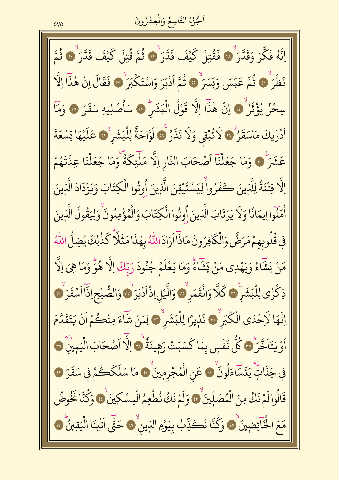 ٥٧٥
اَلْجُزْءُ التَّاسِعُ وَالْعِشْرُونَ
اِنَّهُ فَكَّرَ وَقَدَّرَ ۝ فَقُتِلَ كَيْفَ قَدَّرَ ۝ ثُمَّ قُتِلَ كَيْفَ قَدَّرَ ۝ ثُمَّ
نَظَرَ ۝ ثُمَّ عَبَسَ وَبَسَرَ ۝ ثُمَّ اَدْبَرَ وَاسْتَكْبَرَ ۝ فَقَالَ اِنْ هٰذَٓا اِلَّا
سِحْرٌ يُؤْثَرُ ۝ اِنْ هٰذَٓا اِلَّا قَوْلُ الْبَشَرِ ۝ سَاُصْلِيهِ سَقَرَ ۝ وَمَٓا
اَدْرٰيكَ مَا سَقَرُ ۝ لَا تُبْقِي وَلَا تَذَرُ ۝ لَوَّاحَةٌ لِلْبَشَرِ ۝ عَلَيْهَا تِسْعَةَ
عَشَرَ ۝ وَمَا جَعَلْنَٓا اَصْحَابَ النَّارِ اِلَّا مَلٰٓئِكَةً وَمَا جَعَلْنَا عِدَّتَهُمْ
اِلَّا فِتْنَةً لِلَّذِينَ كَفَرُوا لِيَسْتَيْقِنَ الَّذِينَ اُوتُوا الْكِتَابَ وَيَزْدَادَ الَّذِينَ
اٰمَنُٓوا اِيمَانًا وَلَا يَرْتَابَ الَّذِينَ اُوتُوا الْكِتَابَ وَالْمُؤْمِنُونَ وَلِيَقُولَ الَّذِينَ
فِي قُلُوبِهِمْ مَرَضٌ وَالْكَافِرُونَ مَاذَٓا اَرَادَ اللّٰهُ بِهٰذَا مَثَلًا كَذٰلِكَ يُضِلُّ اللّٰهُ
مَنْ يَشَٓاءُ وَيَهْدِي مَنْ يَشَٓاءُ وَمَا يَعْلَمُ جُنُودَ رَبِّكَ اِلَّا هُوَ وَمَا هِيَ اِلَّا
ذِكْرٰى لِلْبَشَرِ ۝ كَلَّا وَالْقَمَرِ ۝ وَالَّيْلِ اِذْ اَدْبَرَ ۝ وَالصُّبْحِ اِذَٓا اَسْفَرَ ۝
اِنَّهَا لَاِحْدَى الْكُبَرِ ۝ نَذِيرًا لِلْبَشَرِ ۝ لِمَنْ شَٓاءَ مِنْكُمْ اَنْ يَتَقَدَّمَ
اَوْ يَتَاَخَّرَ ۝ كُلُّ نَفْسٍ بِمَا كَسَبَتْ رَهِينَةٌ ۝ اِلَّٓا اَصْحَابَ الْيَمِينِ ۝
فِي جَنَّاتٍ يَتَسَٓاءَلُونَ ۝ عَنِ الْمُجْرِمِينَ ۝ مَا سَلَكَكُمْ فِي سَقَرَ ۝
قَالُوا لَمْ نَكُ مِنَ الْمُصَلِّينَ ۝ وَلَمْ نَكُ نُطْعِمُ الْمِسْكِينَ ۝ وَكُنَّا نَخُوضُ
مَعَ الْخَٓائِضِينَ ۝ وَكُنَّا نُكَذِّبُ بِيَوْمِ الدِّينِ ۝ حَتّٰٓى اَتٰينَا الْيَقِينُ ۝